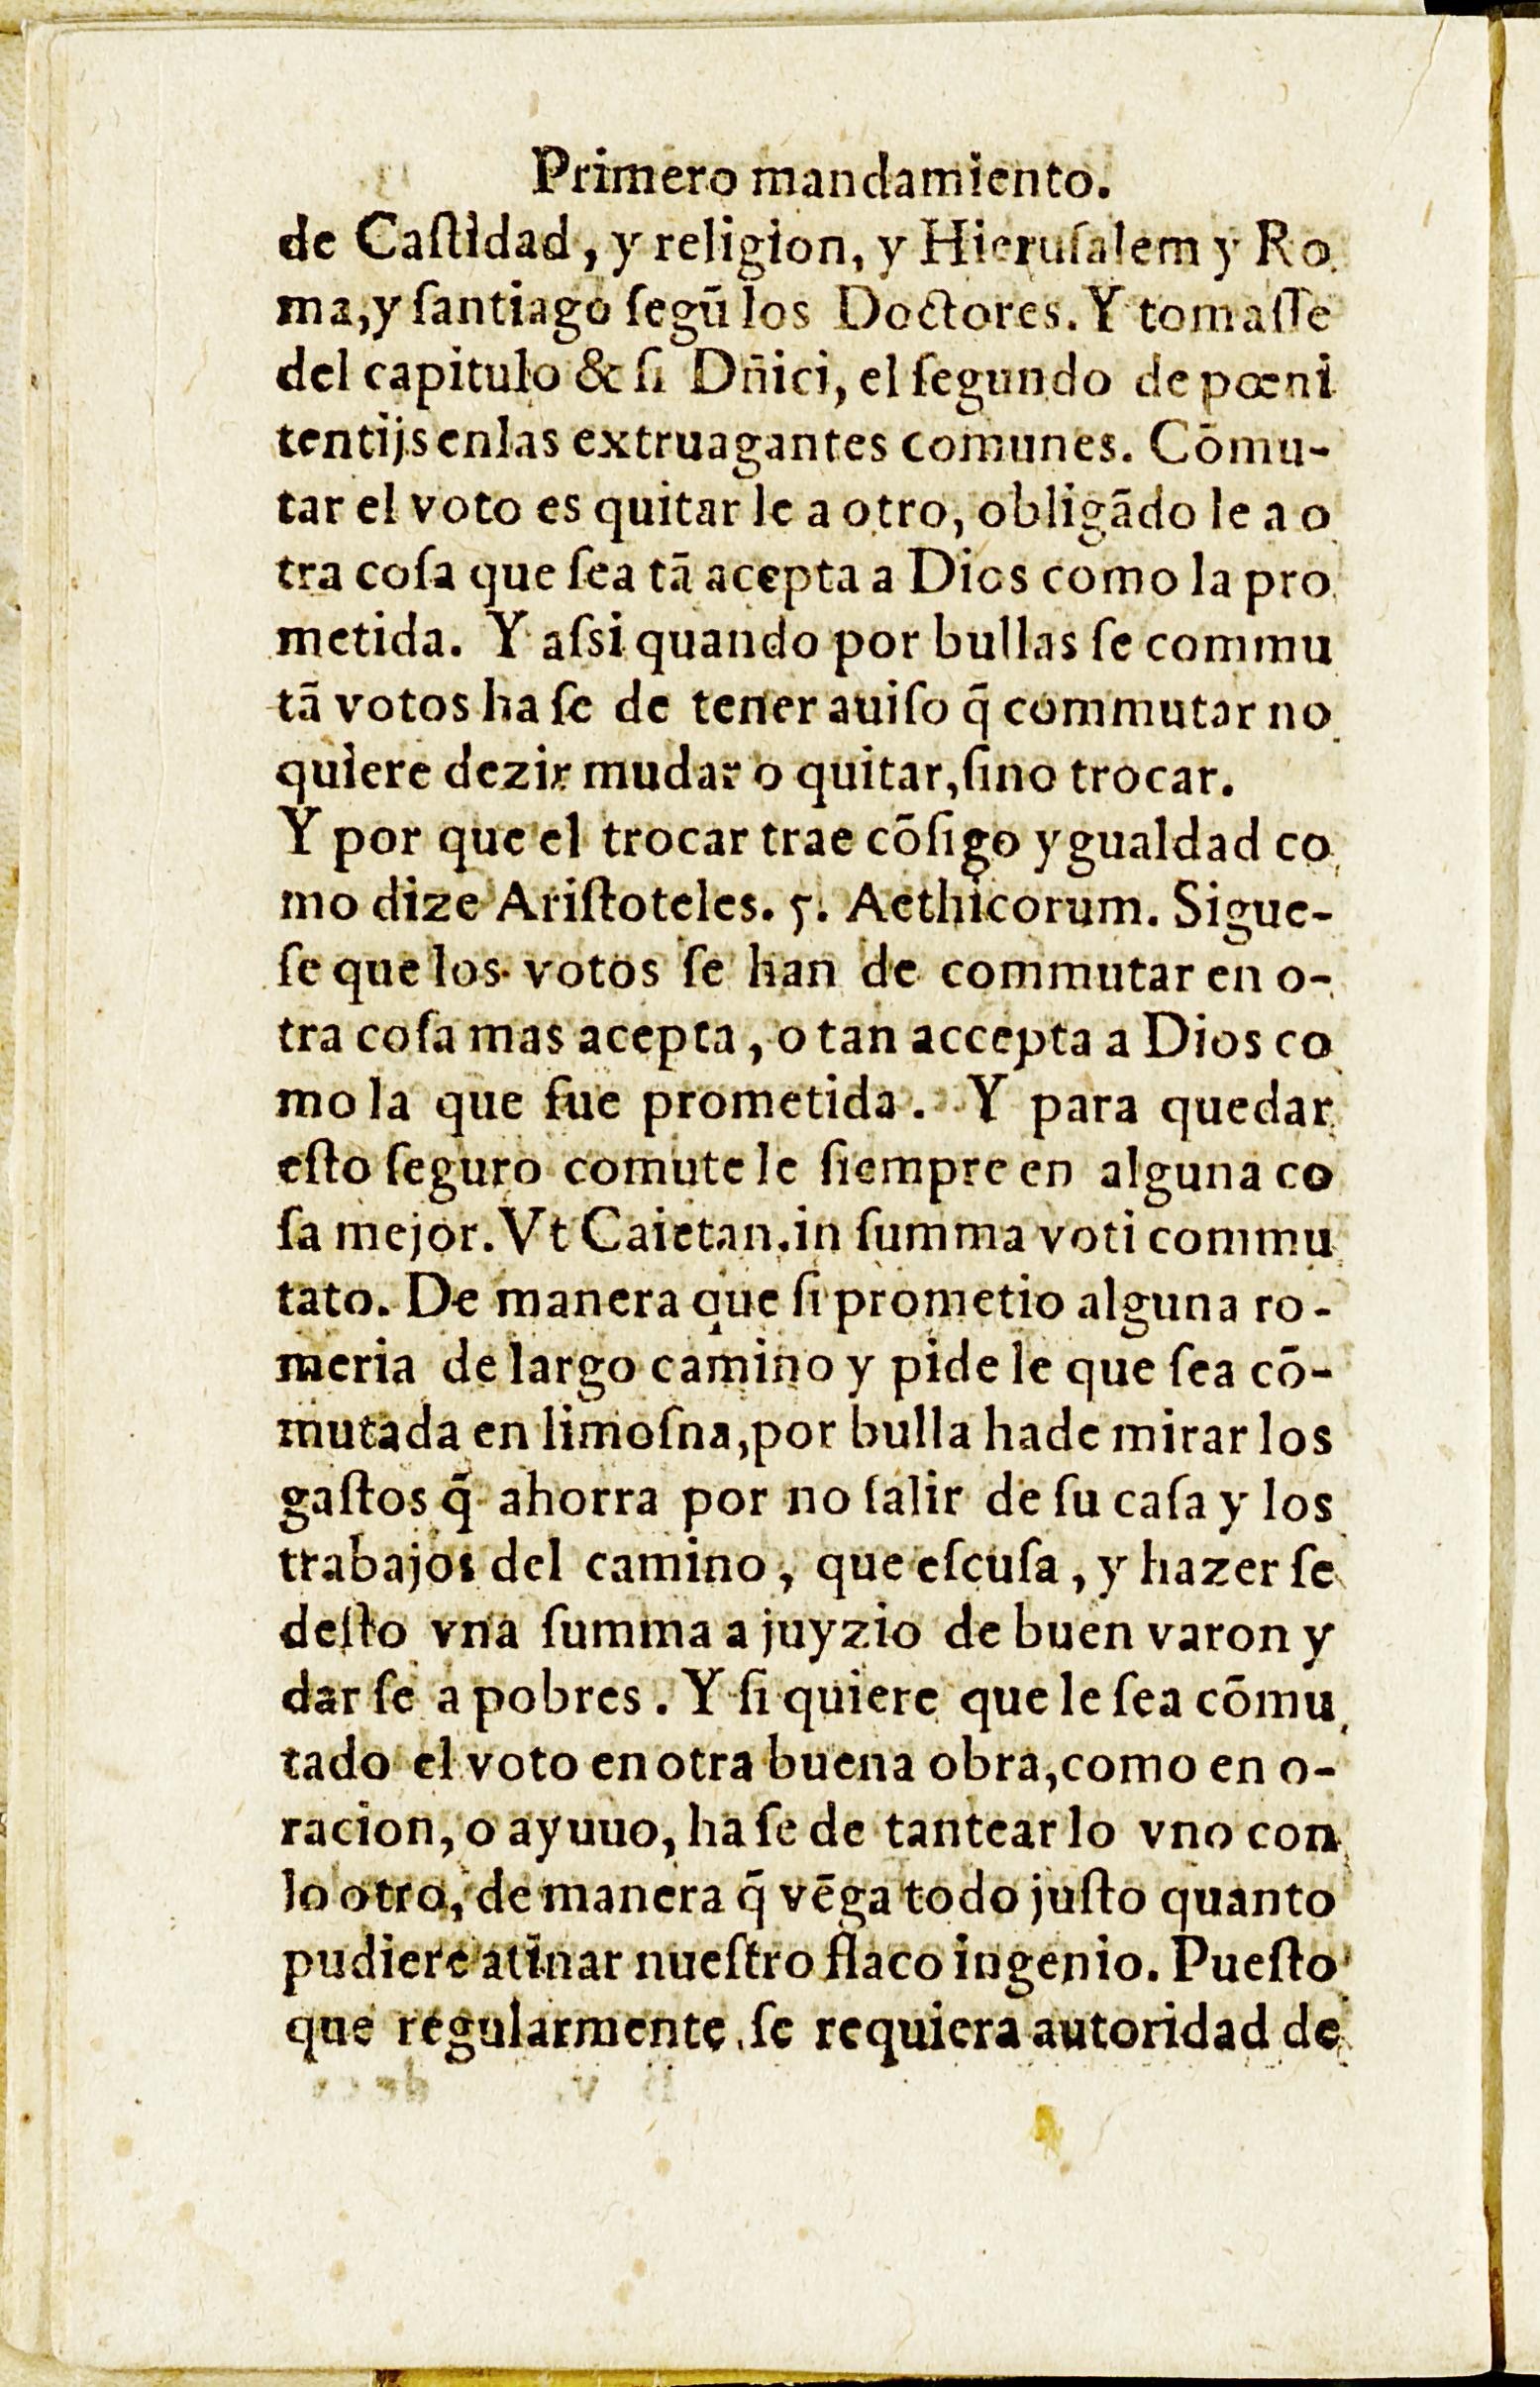 Primero mandamiento.
de Caſtidad, y religion, y Hieruſalem y Ro
ma, y ſantiago ſegū los Doctores. Y tomaſſe
del capitulo & ſi Dñici, el ſegundo de pœni
tentijs enlas extruagantes comunes. Cōmu-
tar el voto es quitar le a otro, obligādo le a o
tra coſa que ſea tā acepta a Dios como la pro
metida. Y aſsi quando por bullas ſe commu
tā votos ha ſe de tener auiſo q̃ commutar no
quiere dezir mudar o quitar, ſino trocar.
Y por que el trocar trae cōſigo ygualdad co
mo dize Ariſtoteles. 5. Aethicorum. Sigue-
ſe que los votos ſe han de commutar en o-
tra coſa mas acepta, o tan accepta a Dios co
mo la que fue prometida. Y para quedar
eſto ſeguro comute le ſiempre en alguna co
ſa mejor. Vt Caietan. in ſumma voti commu
tato. De manera que ſi prometio alguna ro-
meria de largo camino y pide le que ſea cō-
mutada en limoſna, por bulla hade mirar los
gaſtos q̃ ahorra por no ſalir de ſu caſa y los
trabajos del camino, que eſcuſa, y hazer ſe
deſto vna ſumma a juyzio de buen varon y
dar ſe a pobres. Y ſi quiere que le ſea cōmu
tado el voto en otra buena obra, como en o-
racion, o ayuuo, ha ſe de tantear lo vno con
lo otro, de manera q̃ vēga todo juſto quanto
pudiere atinar nueſtro flaco ingenio. Pueſto
que regularmente ſe requiera autoridad de